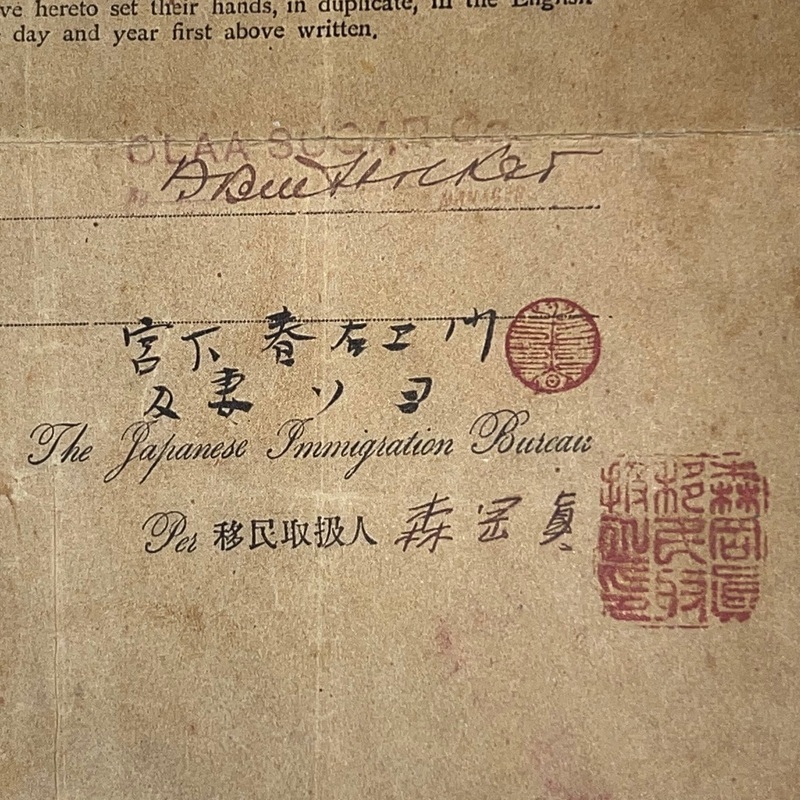 ve hereto set their hands, in duplicate, in the English
day and year first above written.
OLAA SUGAR CO.
MANAGER
宮下春右エ門
及妻ソヨ
The Japanese Immigration Bureau
Per 移民取扱人 森岡真